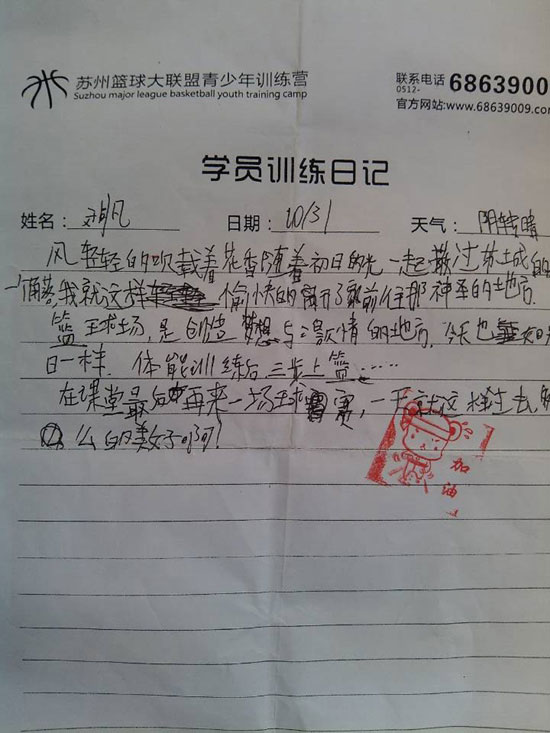 苏州篮球大联盟青少年训练营
Suzhou major league basketball youth training camp
联系电话 0512- 68639009
官方网站:www.68639009.com
学员训练日记
姓名: 凡 日期: 10/31 天气: 阴转晴
风轻轻的吹载着花香随着初日的光一起撒过城的
我就这样愉快的离开了家前往那神圣的地方.
篮球场,是创造梦想与激情的地方,今天也如
日一样.体能训练后三步上篮……
在课堂最后再来一场球赛,一下去,
么的美好啊!
加油